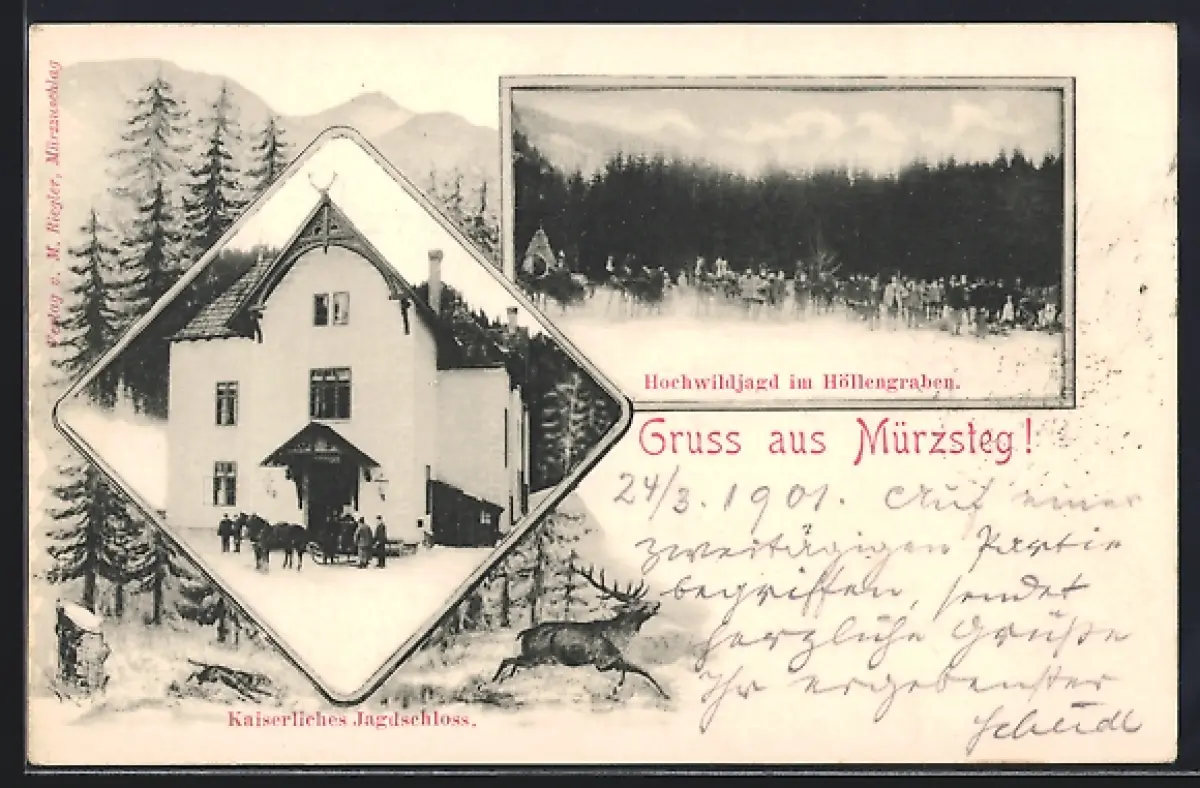 Verlag v. M. Riegler, Mürzzuschlag
Hochwildjagd im Höllengraben.
Gruss aus Mürzsteg!
24/3. 1901. Auf einer
zweitägigen Partie
begriffen, sendet
herzliche Grüße
Ihr ergebenster
Kaiserliches Jagdschloss.